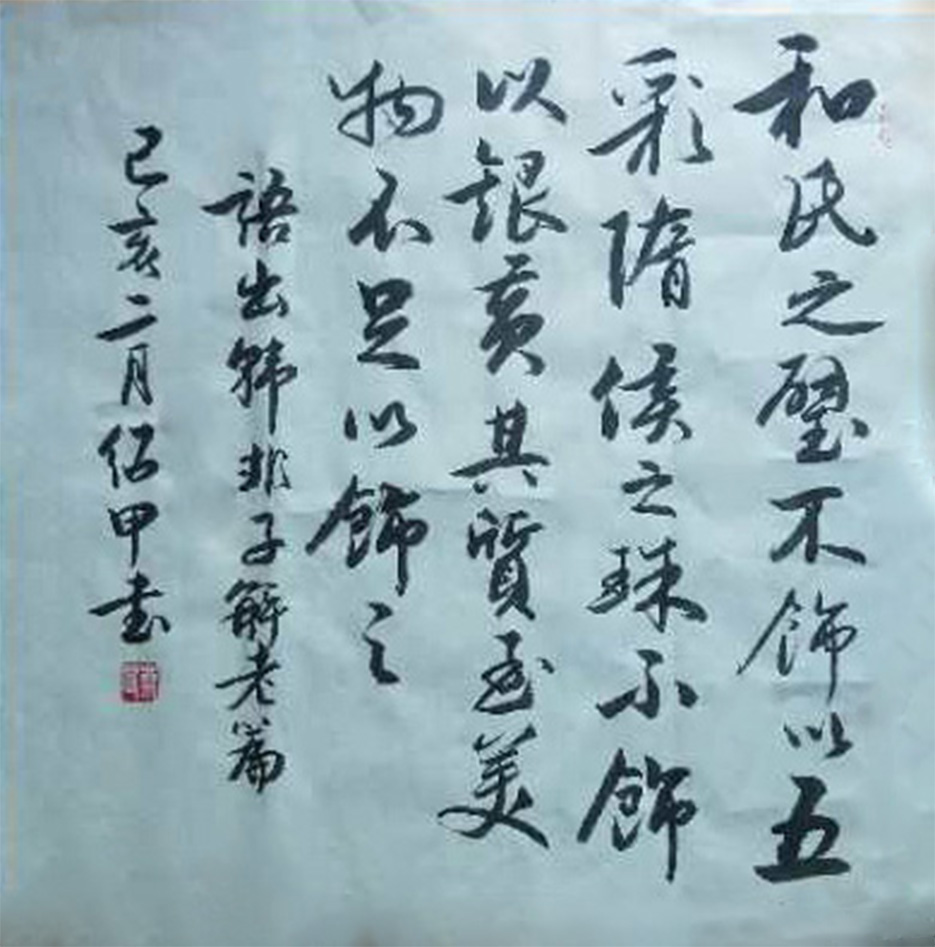 和氏之璧不飾以五
彩隋侯之珠不飾
以銀黄其質至美
物不足以飾之
語出韓非子解老篇
己亥二月紹甲書